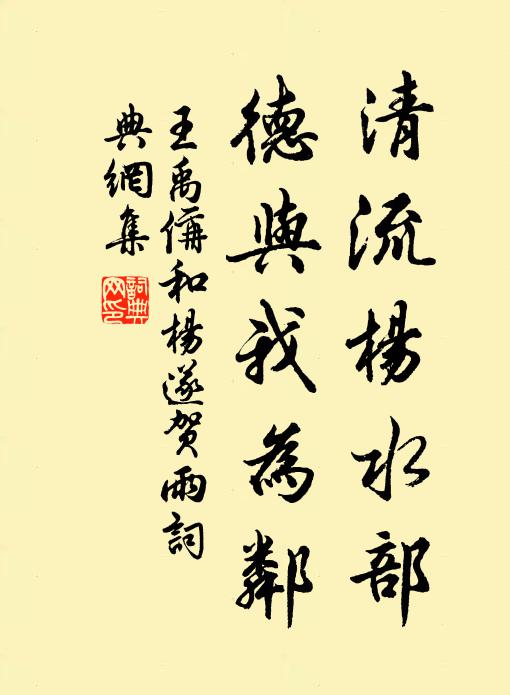 清流楊水部
德與我為鄰
王禹偁和楊遂賀雨詞
典網集
詞典
网印